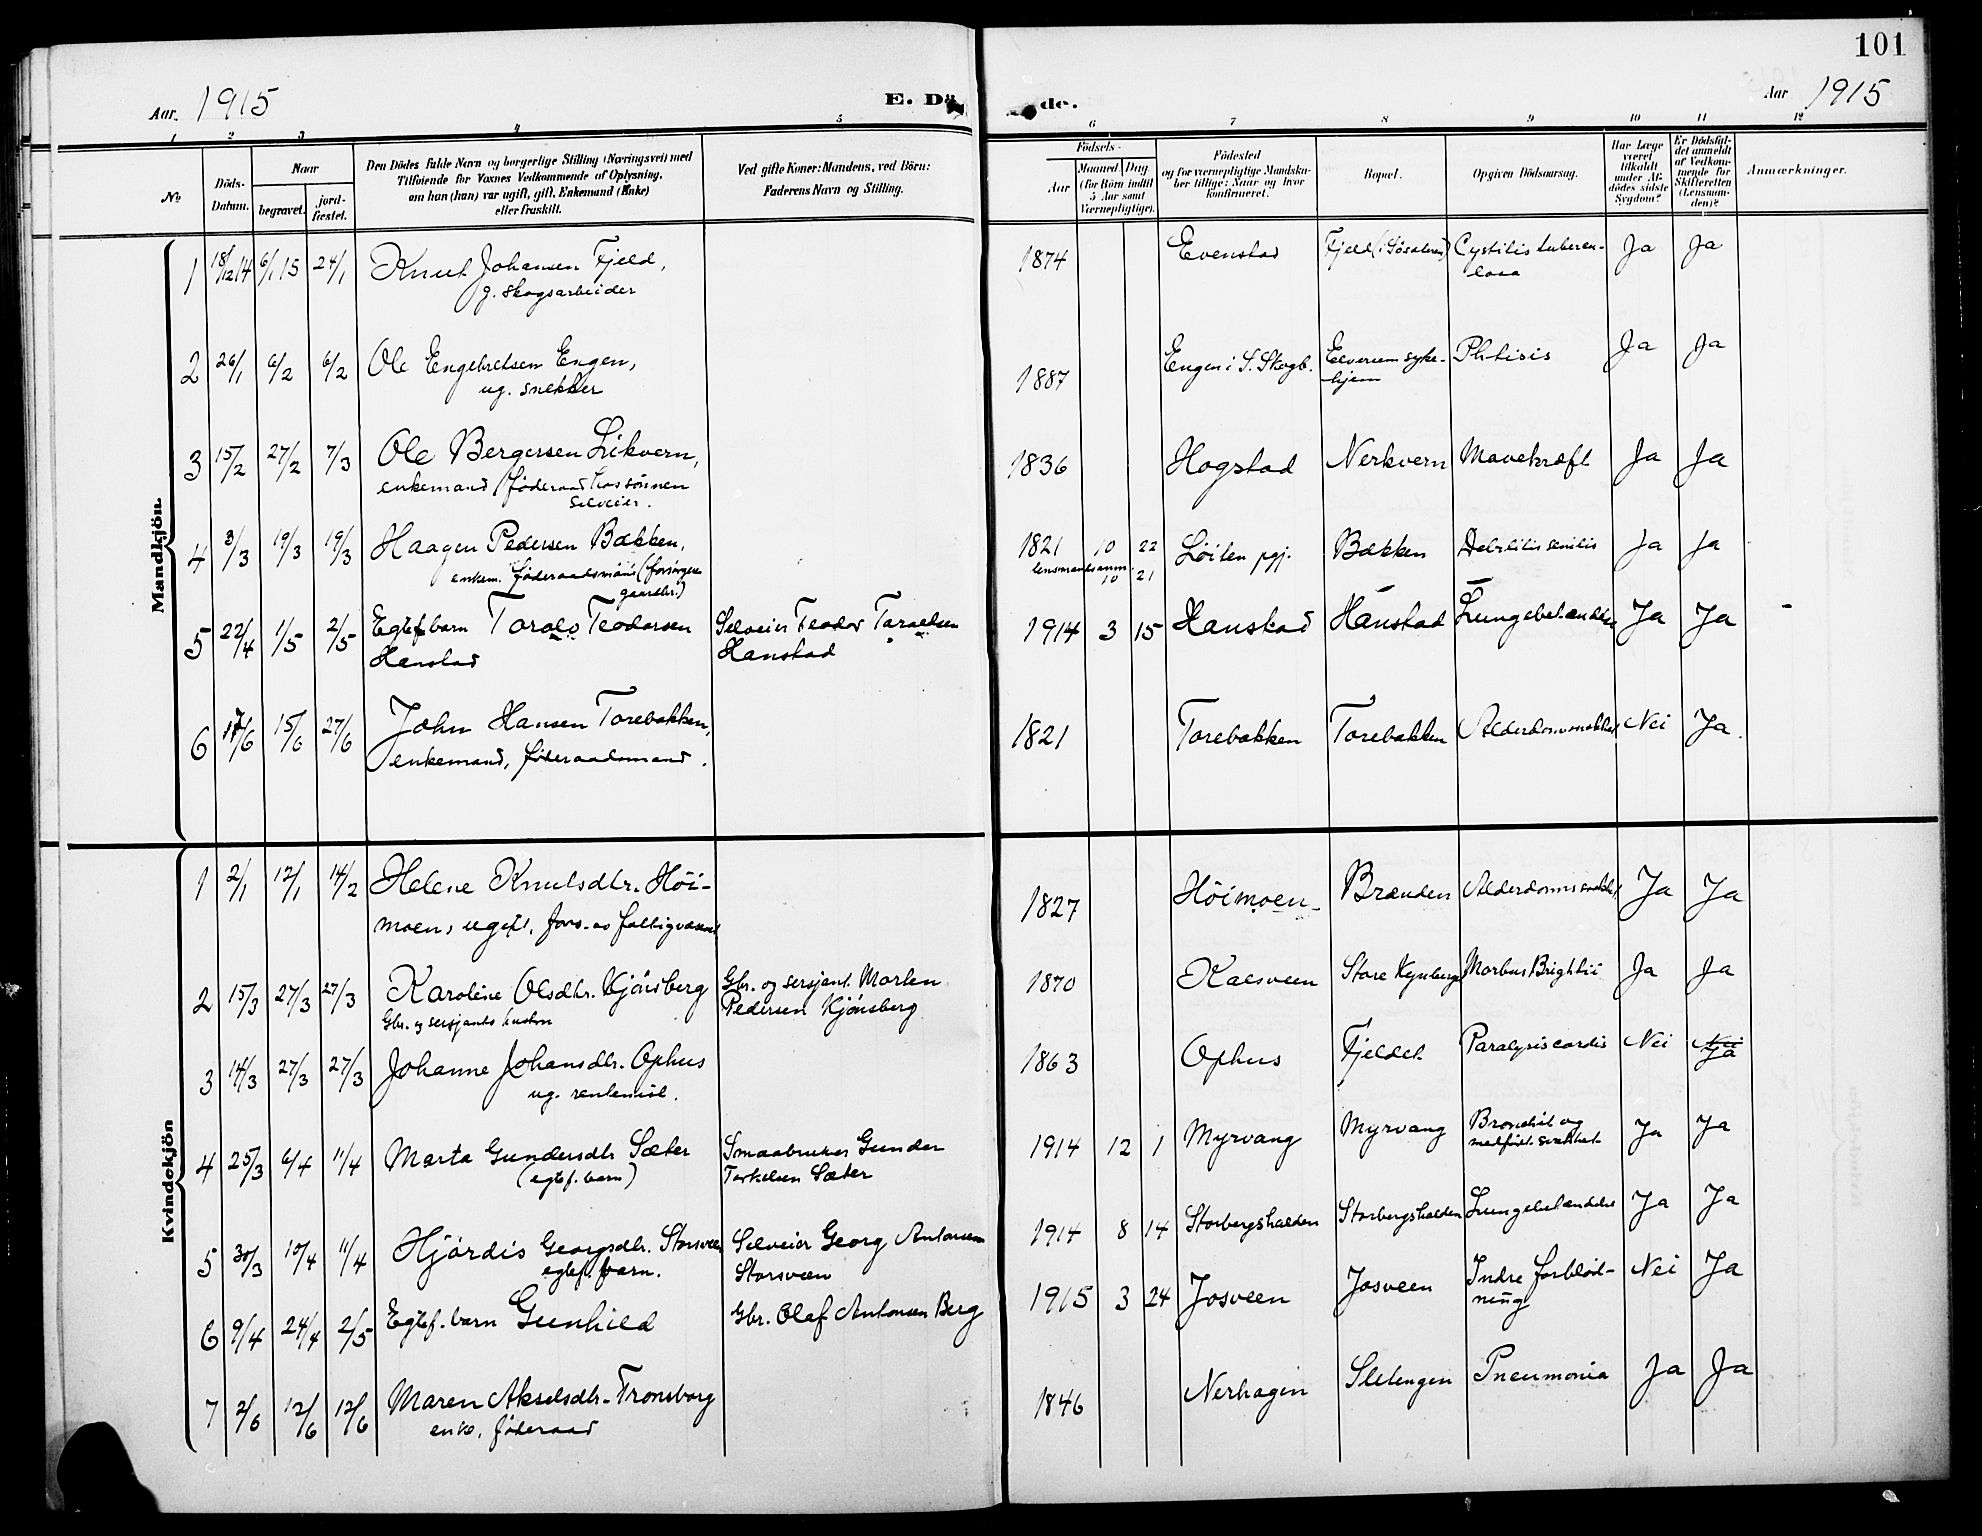 101
Aar. 1915
E. Dø
de.
Aar 1915
1 2 3 4 5 6 7 8 9 10 11 12
No
Døds-
Datum.
Naar
begravet.
jord-
fæstet.
Den Dödes fulde Navn og borgerlige Stilling (Næringsvei) med
Tilföiende for Voxnes Vedkommende af Oplysning,
om han (hun) var ugift, gift, Enkemand (Enke)
eller fraskilt.
Ved gifte Koner: Mandens, ved Börn:
Faderens Navn og Stilling.
Födsels-
Aar
Maaned
Dag.
(for Börn indtil
5 Aar samt
Værnepligtige).
Födested
og for værnepligtige Mandska-
ber tillige: Naar og hvor
konfirmeret.
Bopæl.
Opgiven Dödsaarsag.
Har Læge
været
tilkaldt
under Af-
dödes sidste
Sygdom?
Er Dödsfal-
det anmeldt
af Vedkom-
mende for
Skifteretten
(Lensman-
den)?
Anmærkninger.
Mandkjön.
1 18/12 14 6/1 15 24/1 Knut Johansen Fjeld, 1874 Evenstad Fjeld Cystitis tubercu- Ja Ja
g. skogsarbeider
losa
2 26/1 6/2 6/2 Ole Engebretsen Engen, 1887 Engen i S. Skogb. Elverum syke- Phtisis Ja Ja
ug. snekker
hjem
3 15/2 27/2 7/3 Ole Bergersen Likvern, 1836 Hogstad Nerkvern Mavekræft Ja Ja
enkemand (föderaad hos sönnen
selveier.
4 3/3 19/3 19/3 Haagen Pedersen Bækken, 1821 10 22 Löiten pgj. Bækken Debilitis senilis Ja Ja
enkem. föderaadsmand (forsörger
gaardbr.)
lensmandsanm. 10 21
5 22/4 1/5 2/5 Egtef barn Toralv Teodorsen Selveier Teodor Toralvsen 1914 3 15 Hanstad Hanstad Lungebetændelse Ja Ja
Hanstad Hanstad
6 17/6 15/6 27/6 John Hansen Torebakken, 1821 Torebakken Torebakken Alderdomssvakhet Nei Ja
enkemand, föderaadsmand.
Kvindekjön
1 2/1 12/1 14/2 Helene Knutsdtr. Höi- 1827 Höimoen Brænden Alderdomssvakhet Ja Ja
moen, ugift, fors. av fattigvæsnet
2 15/3 27/3 27/3 Karoline Olsdtr. Kjönsberg Gbr. og sersjant Morten 1870 Kalsveen Store Kynberget Morbus Brightii Ja Ja
Gbr. og sersjants hustru Pedersen Kjönsberg
3 14/3 27/3 27/3 Johanne Johansdtr. Ophus 1863 Ophus Fjeldet Paralysis cordis Nei Nei Ja
ug. rentenist.
4 25/3 6/4 11/4 Marta Gundersdtr Sæter Smaabruker Gunder 1914 12 1 Myrvang Myrvang Bronchit og Ja Ja
(egtef. barn) Torkelsen Sæter
medfödt svakhet
5 30/3 10/4 11/4 Hjördis Georgsdtr. Storsveen Selveier Georg Antonsen 1914 8 14 Storbergshalden Storbergshalden Lungebetændelse Ja Ja
egtef. barn. Storsveen
6 9/4 24/4 2/5 Egtef. barn Gunhild Gbr. Olaf Antonsen Berg 1915 3 24 Josveen Josveen Indre forblöd- Nei Ja
ning
7 2/6 12/6 12/6 Maren Akselsdtr. Tronsborg 1846 Nerhagen Sletengen Pneumonia Ja Ja
enke, föderaad